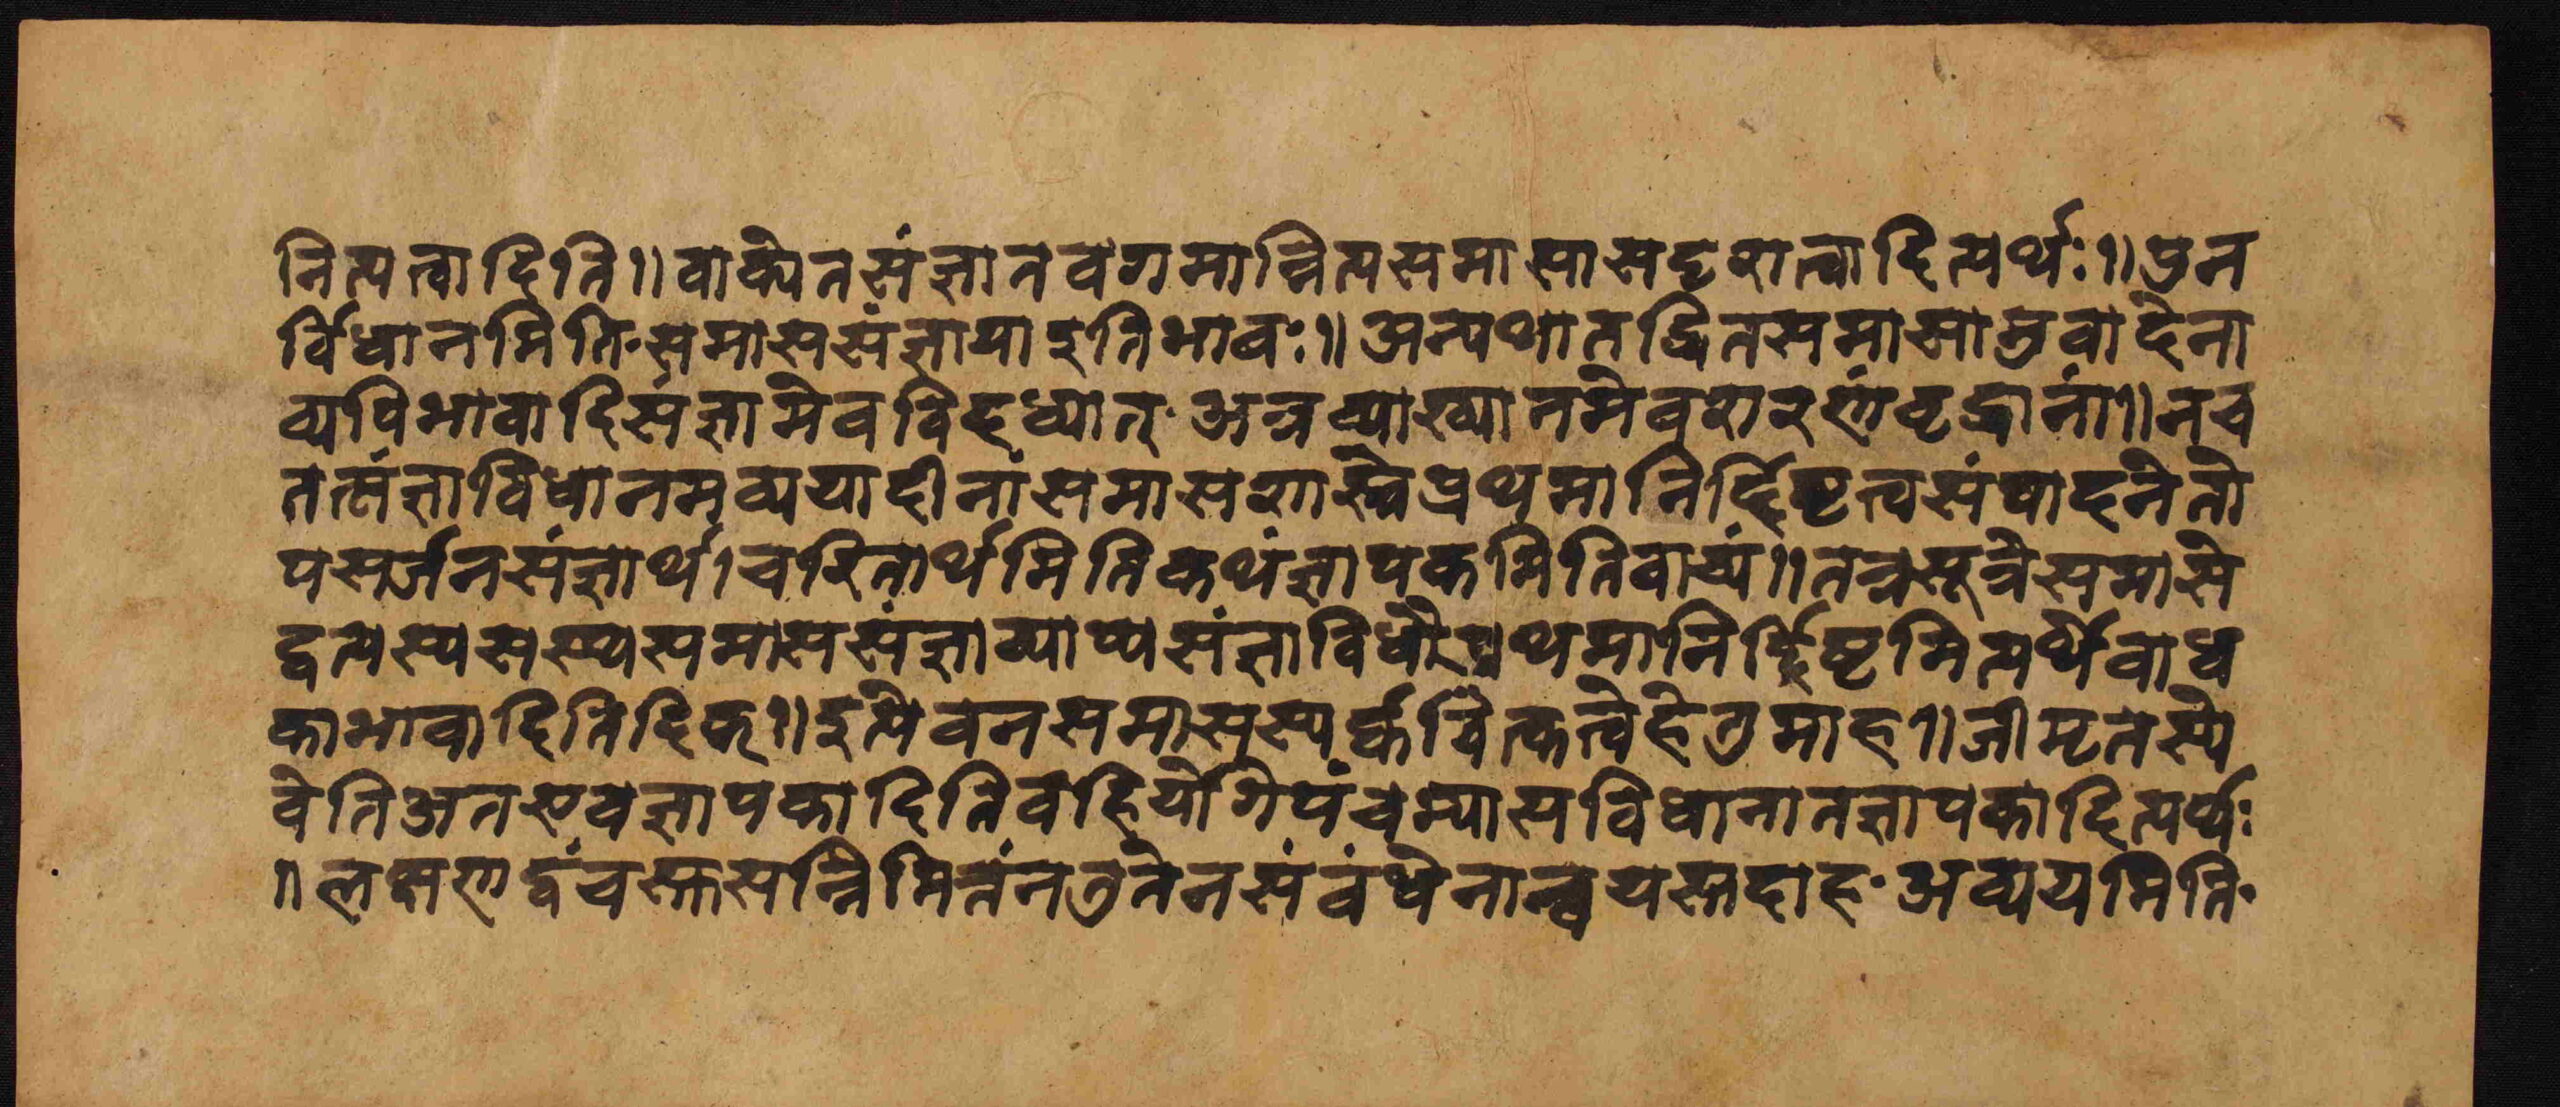 नित्यत्वादिति॥वाक्येनसंज्ञानवगमान्नित्यसमासासदृशत्वादित्यर्थः॥पुन
र्विधानमिति·समाससंज्ञायाइतिभावः॥अन्यथातद्धितसमासानुवादेना
व्ययिभावादिसंज्ञामेवविदध्यात्·अत्रव्याख्यानमेवशरणंवृद्धानां॥नच
तत्संज्ञाविधानमव्ययादीनांसमासशास्त्रेप्रथमानिर्द्दिष्टत्वसंपादनेनो
पसर्जनसंज्ञार्थ।चरितार्थमितिकथंज्ञापकमितिवाच्यं॥तत्रसूत्रेसमासे
द्वत्यस्यसस्यसमाससंज्ञाव्याप्यसंज्ञाविधौप्रथमानिर्द्दिष्टमित्यर्थेबाध
काभावादितिदिक्॥इत्येवनसमासस्य
वेतिअतएवज्ञापकादितिबहिर्योगेपंचम्यासविधानातज्ञापकादित्यर्थः
॥लक्षणद्वंचस्तसन्निमित्तंनतुतेनसंबंधेनान्वयस्तदाह·अव्ययमिति·